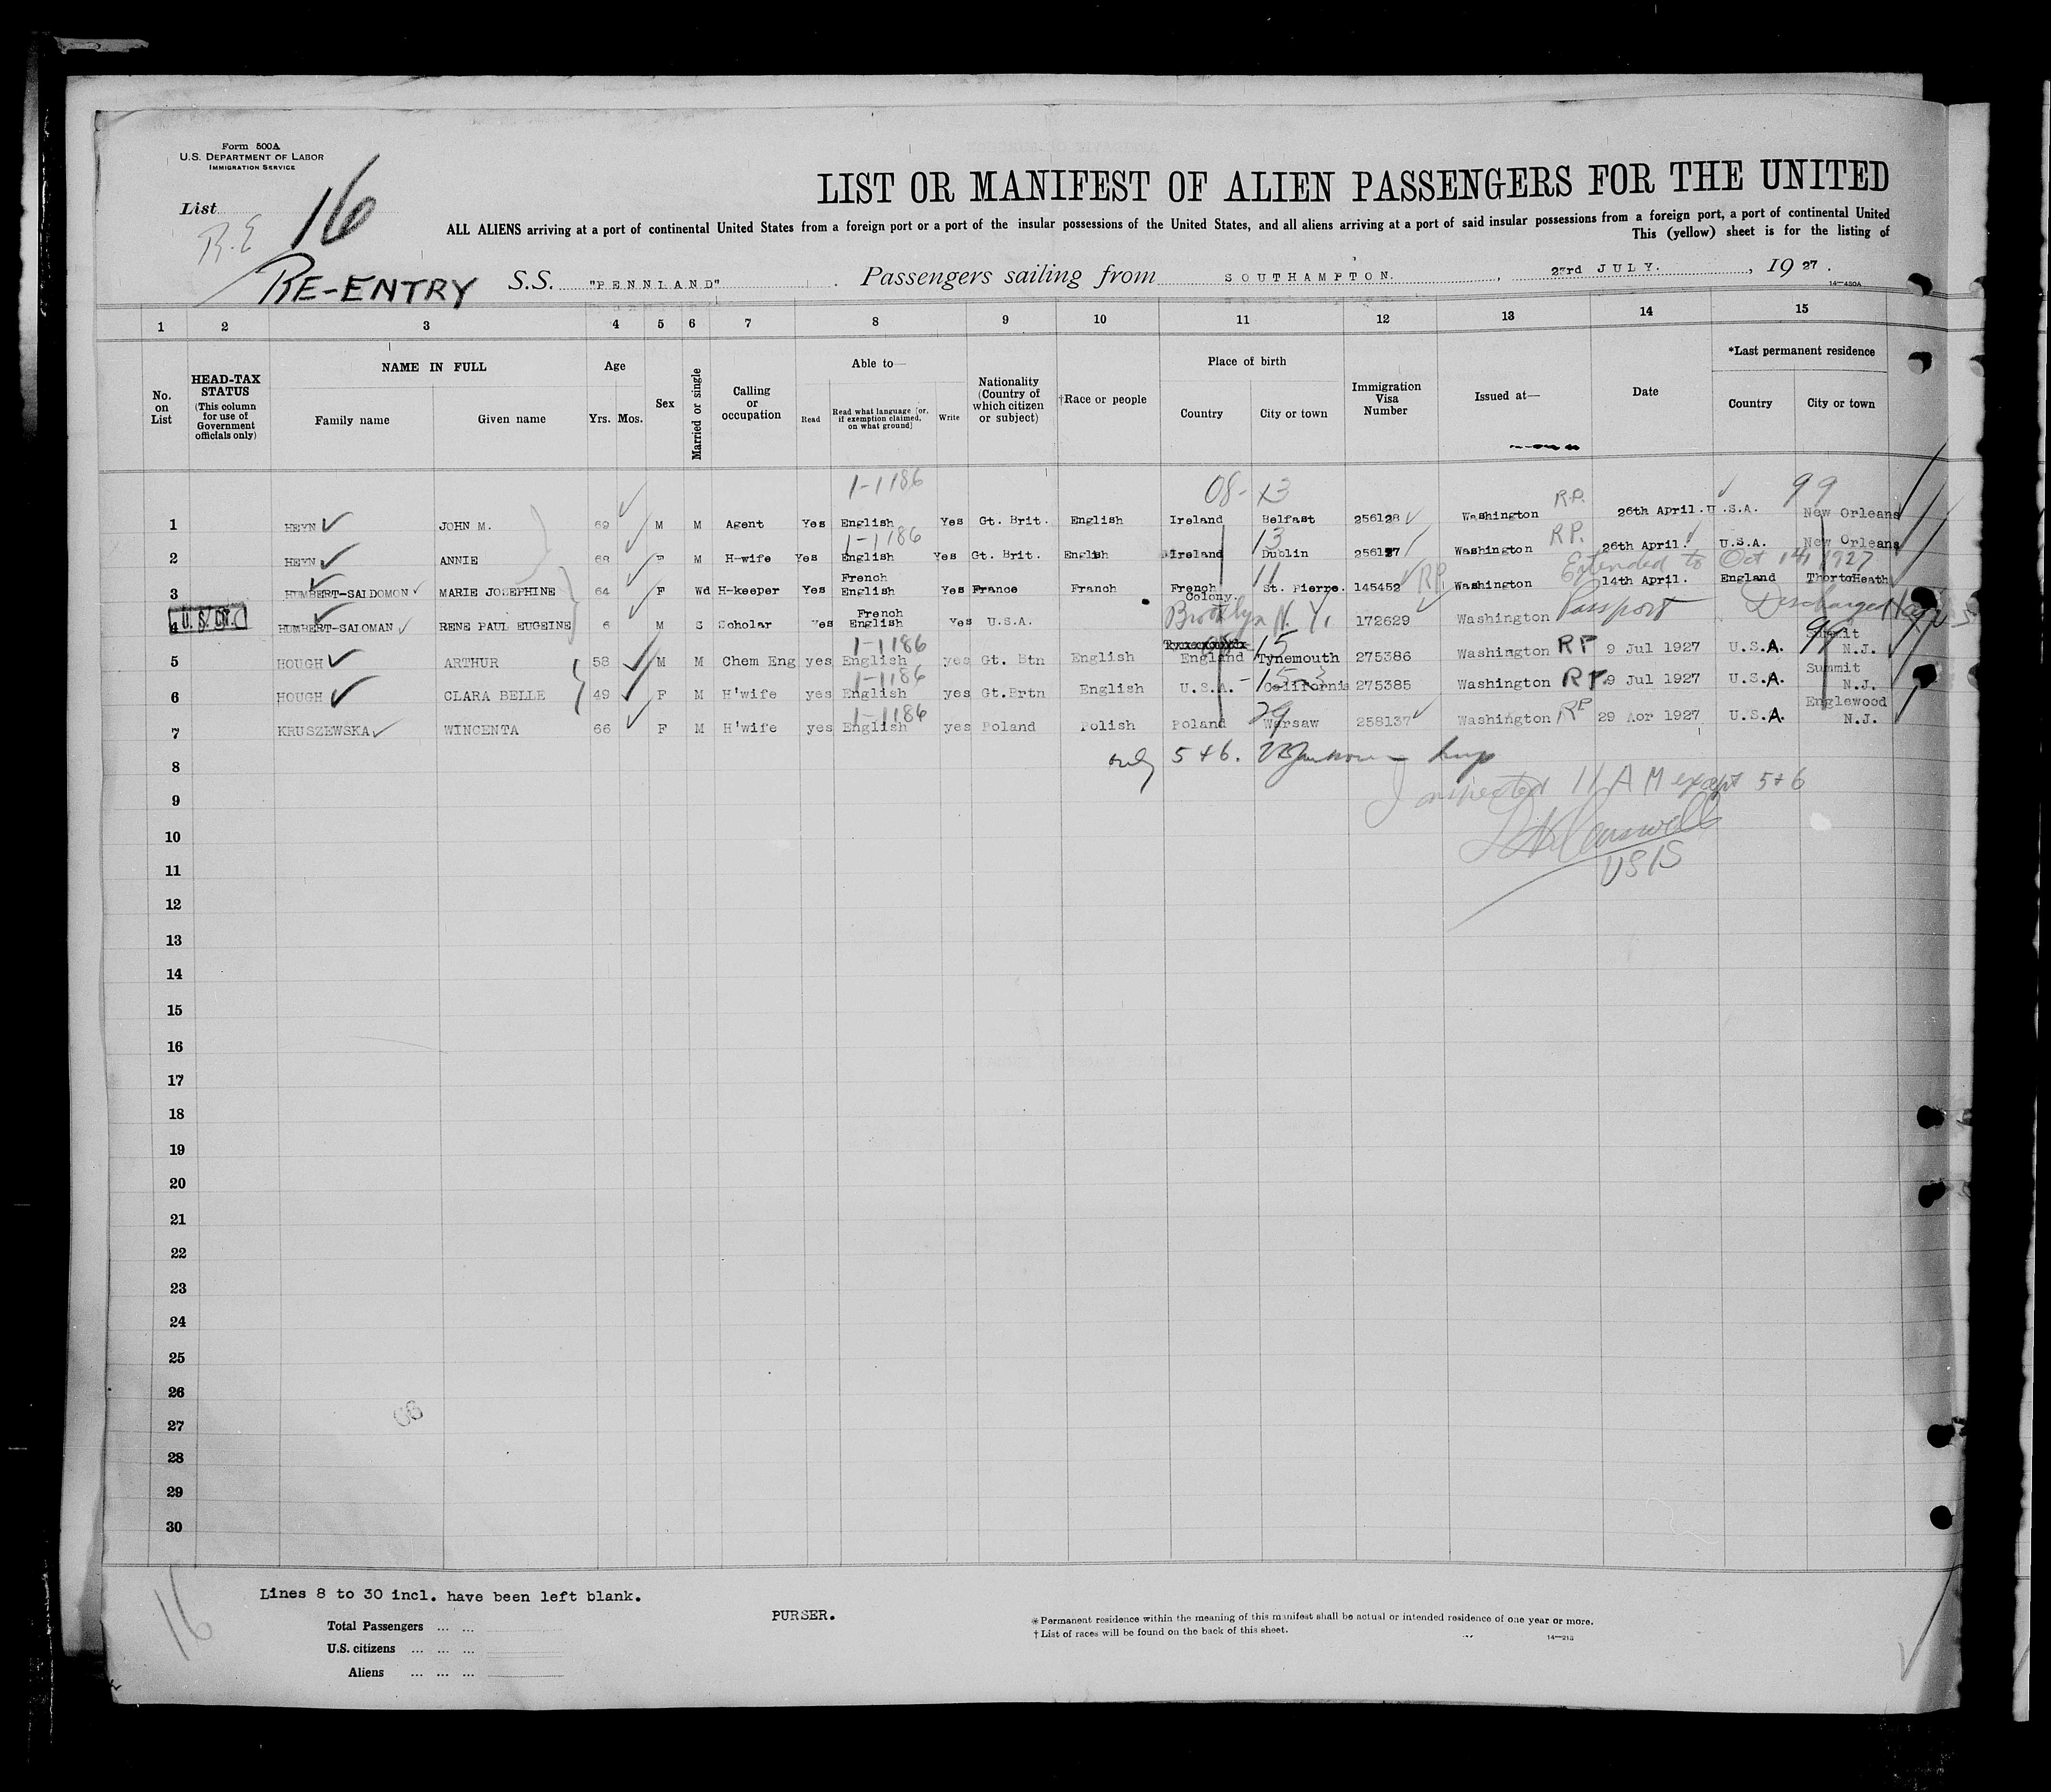 Form 500A
U.S. DEPARTMENT OF LABOR
IMMIGRATION SERVICE
List 16
R.E
RE-ENTRY
LIST OR MANIFEST OF ALIEN PASSENGERS FOR THE UNITED
ALL ALIENS arriving at a port of continental United States from a foreign port or a port of the insular possessions of the United States, and all aliens arriving at a port of said insular possessions from a foreign port, a port of continental United
This (yellow) sheet is for the listing of
S.S. "PENNLAND" Passengers sailing from SOUTHAMPTON. , 23rd JULY. , 19 27 .
14—430A
1 2 3 4 5 6 7 8 9 10 11 12 13 14 15
No. on List
HEAD-TAX STATUS (This column for use of Government officials only)
NAME IN FULL
Family name Given name
Age
Yrs. Mos.
Sex
Married or single
Calling or occupation
Able to—
Read Read what language [or, if exemption claimed, on what ground] Write
Nationality (Country of which citizen or subject)
†Race or people
Place of birth
Country City or town
Immigration Visa Number
Issued at—
Date
*Last permanent residence
Country City or town
1-1186 08- 13 R.P. 99
1 HEYN JOHN M. 69 M M Agent Yes English Yes Gt. Brit. English Ireland Belfast 256128 Washington 26th April. U.S.A. New Orleans
1-1186 13 R.P.
2 HEYN ANNIE 68 F M H-wife Yes English Yes Gt. Brit. English Ireland Dublin 256127 Washington 26th April. U.S.A. New Orleans
11 RP Extended to Oct 14, 1927
3 HUMBERT-SALDOMON MARIE JOSEPHINE 64 F Wd H-keeper Yes French English Yes France Franch French Colony. St. Pierre. 145452 Washington 14th April. England ThortoHeath
U.S. CIT.
4 HUMBERT-SALOMAN RENE PAUL EUGEINE 6 M S Scholar Yes French English Yes U.S.A. Brooklyn N.Y. 172629 Washington Passport Discharged
1-1186 15
5 HOUGH ARTHUR 58 M M Chem Eng yes English yes Gt. Btn English England Tynemouth 275386 Washington RP 9 Jul 1927 U.S.A. Summit N.J.
1-1186
6 HOUGH CLARA BELLE 49 F M H'wife yes English yes Gt.Brtn English U.S.A. California 275385 Washington RP 9 Jul 1927 U.S.A. Summit N.J.
1-1186 29
7 KRUSZEWSKA WINCENTA 66 F M H'wife yes English yes Poland Polish Poland Warsaw 258137 Washington RP 29 Apr 1927 U.S.A. Englewood N.J.
8 only 5+6.
9 inspected 11 AM except 5+6
10
USIS
11
12
13
14
15
16
17
18
19
20
21
22
23
24
25
26
27
28
29
30
16
Lines 8 to 30 incl. have been left blank.
PURSER.
Total Passengers ... ...
U.S. citizens ... ... ...
Aliens ... ... ...
*Permanent residence within the meaning of this manifest shall be actual or intended residence of one year or more.
†List of races will be found on the back of this sheet.
14—213